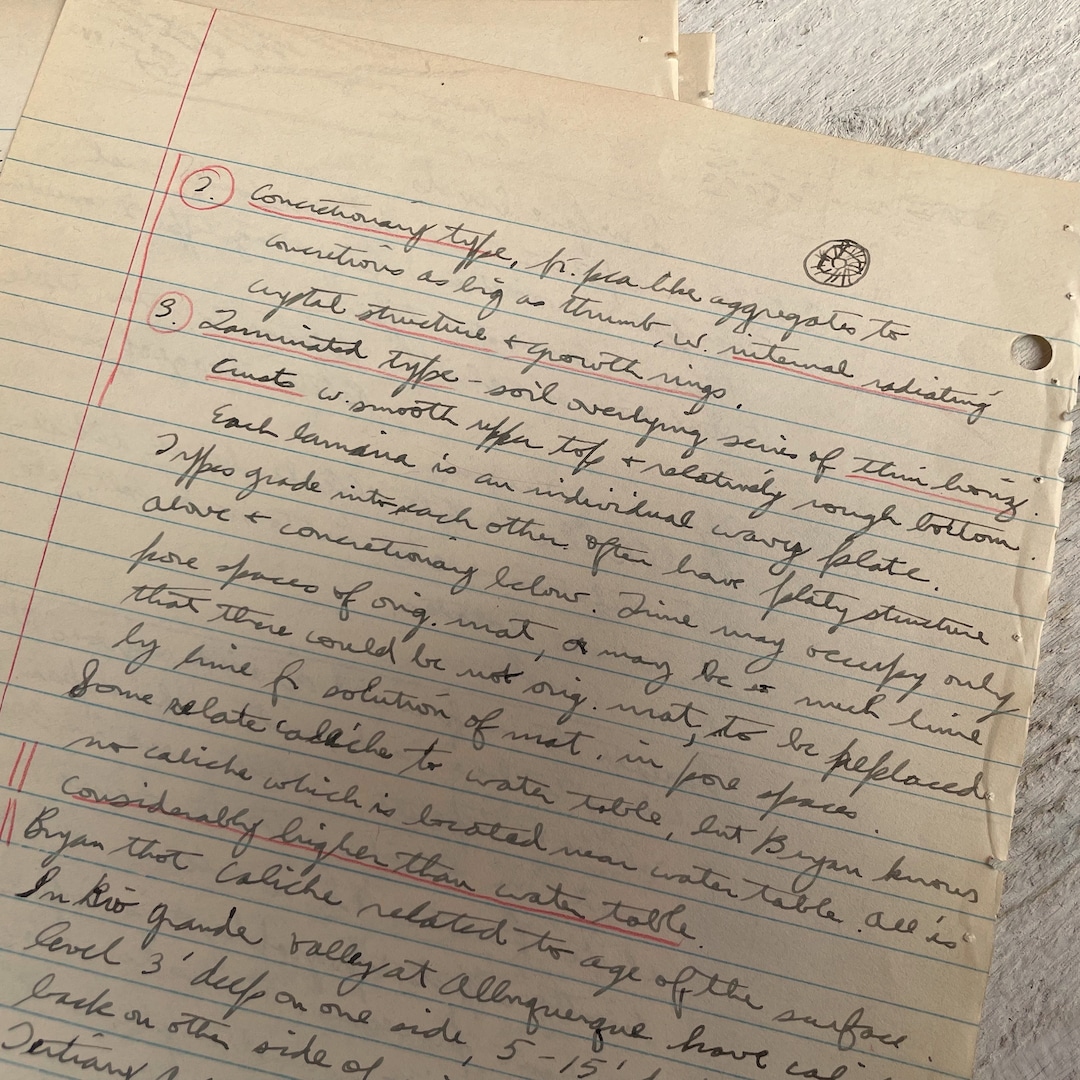 2. Concretionary type, fr. pea like aggregates to
concretions as big as thumb, w. internal radiating
crystal structure + growth rings.
3. Laminated type - soil overlying series of thin horiz.
crusts w. smooth upper top + relatively rough bottom.
Each lamina is an individual wavy plate.
Types grade into each other. often have platy structure
above + concretionary below. Lime may occupy only
pore spaces of orig. mat, or may be so much lime
that there could be not orig. mat, to be replaced
by lime fr solution of mat. in pore spaces.
Some relate caliche to water table, but Bryan knows
no caliche which is located near water table. All is
considerably higher than water table.
Bryan that caliche related to age of the surface.
In Rio Grande valley at Albuquerque have cal
level 3' deep on one side, 5-15'
back on other side of
Tertiary